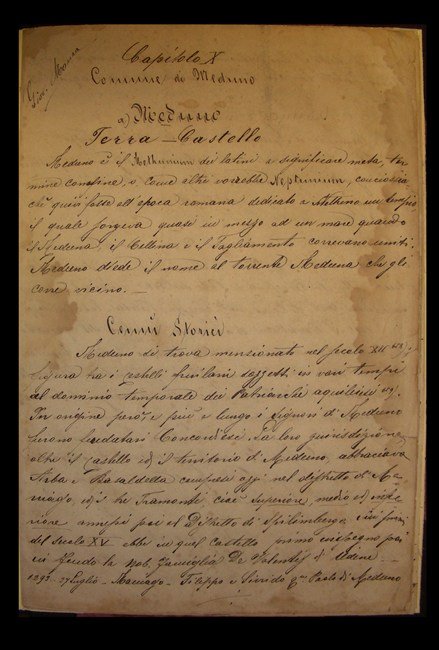 Giov. 
Capitolo X
Comune di Meduno
a) Meduno
Terra – Castello
Meduno è il Methunium dei latini a significare meta, ter
mine confine, o come altri vorrebbe Neptunium, conciossia
che quivi fosse all'epoca romana dedicato a Nettuno un tempio
il quale sorgeva quasi in mezzo ad un mare quando
il Meduna, il Cellina e il Tagliamento correvano uniti.
Meduno diede il nome al torrente Meduna che gli
corre vicino. —
Cenni Storici
Meduno si trova menzionato nel secolo XII
figura tra i castelli friulani soggetti in vari tempi
al dominio temporale dei Patriarchi aquileiesi
In origine però, e più a lungo i signori di Meduno
furono feudatari Concordiesi. La loro giurisdizione,
oltre il castello ed il territorio di Meduno, abbracciava
Arba e Basaldella comprese oggi nel distretto di Ma-
niago, ed i tre Tramonti cioè Superiore, medio ed infe
riore annessi poi al Distretto di Spilimbergo.
del secolo XV ebbe in quel Castello primo
in feudo la nob. famiglia De di Udine —
1293. 27 Luglio – Maniago – Filippo e q.m Paolo di Meduno